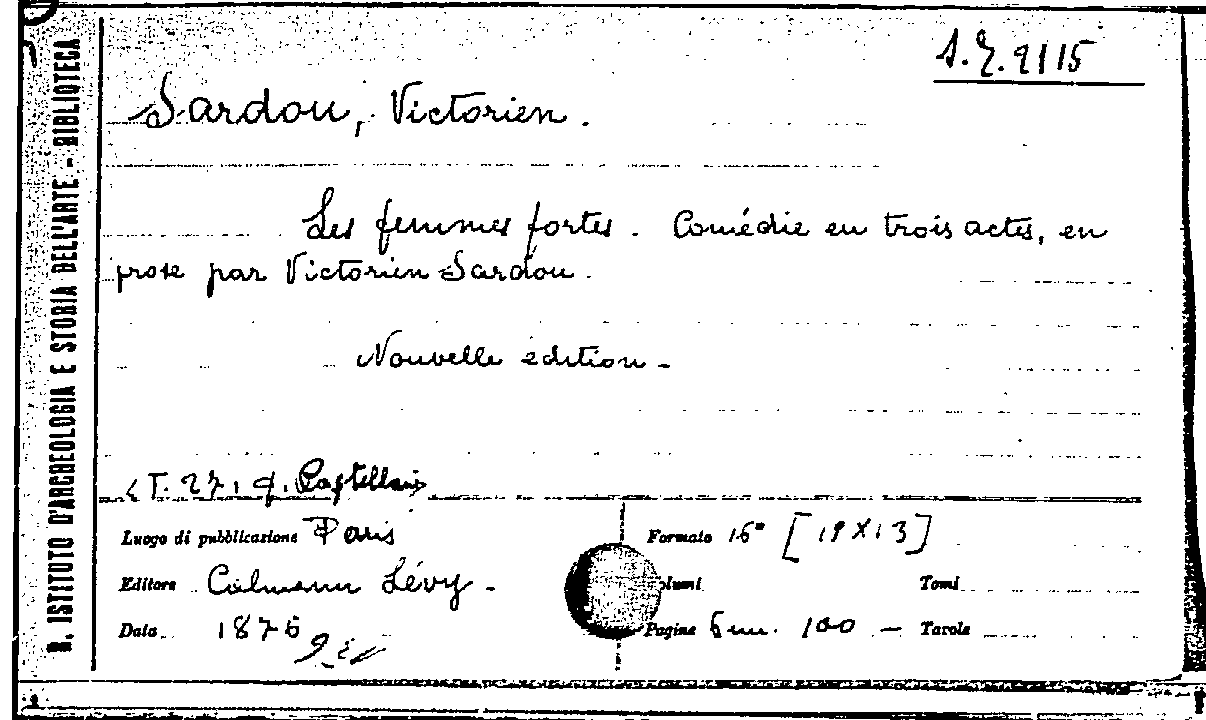 R. ISTITUTO D'ARCHEOLOGIA E STORIA DELL'ARTE - BIBLIOTECA
Sardou, Victorien.
Les femmes fortes. Comédie en trois actes, en
prose par Victorien Sardou.
Nouvelle édition -
Luogo di pubblicazione Paris
Formato 16°
Editore Calmann Lévy -
Tomi
Data 1876
Pagine 6 nn. 100 - Tavole